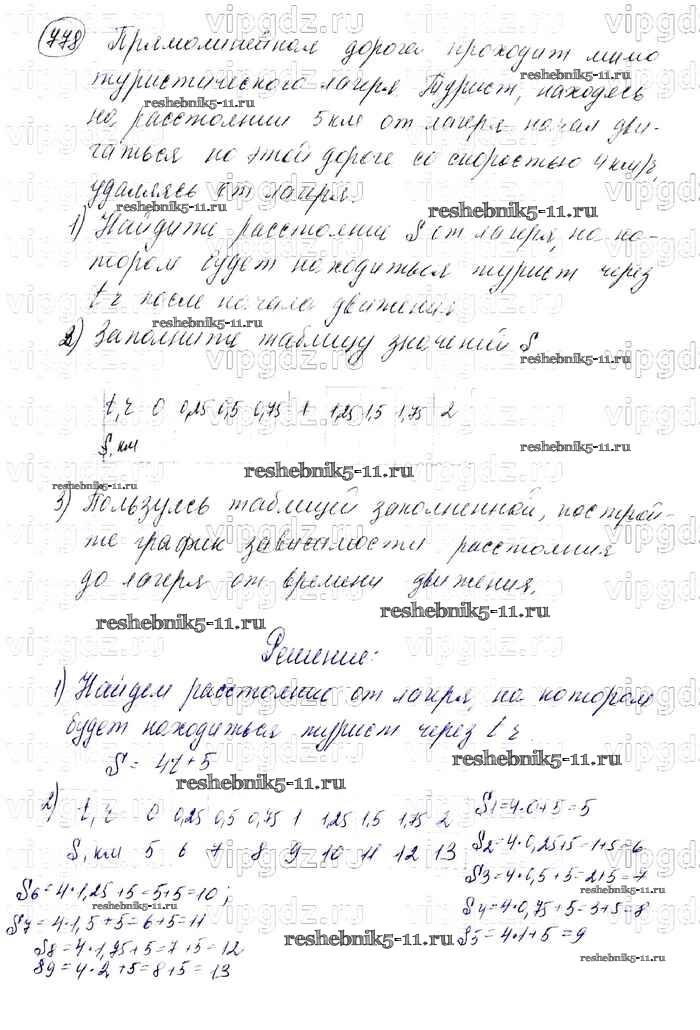 778 Прямолинейная дорога проходит мимо
туристического лагеря. Турист, находясь
на расстоянии 5 км от лагеря, начал дви-
гаться по этой дороге со скоростью 4 км/ч,
удаляясь от лагеря.
1) Найдите расстояние S от лагеря, на ко-
тором будет находиться турист через
t ч после начала движения
2) Заполните таблицу значений S
t, ч 0 0,25 0,5 0,75 1 1,25 1,5 1,75 2
S, км
3) Пользуясь таблицей заполненной, построй-
те график зависимости расстояния
до лагеря от времени движения.
Решение:
1) Найдем расстояние от лагеря, на котором
будет находиться турист через t ч.
S = 4t+5
2) t, ч 0 0,25 0,5 0,75 1 1,25 1,5 1,75 2
S, км 5 6 7 8 9 10 11 12 13
S1=4·0+5=5
S2=4·0,25+5=1+5=6
S3=4·0,5+5=2+5=7
S4=4·0,75+5=3+5=8
S5=4·1+5=9
S6=4·1,25+5=5+5=10;
S7=4·1,5+5=6+5=11
S8=4·1,75+5=7+5=12
S9=4·2+5=8+5=13
vipgdz.ru
reshebnik5-11.ru